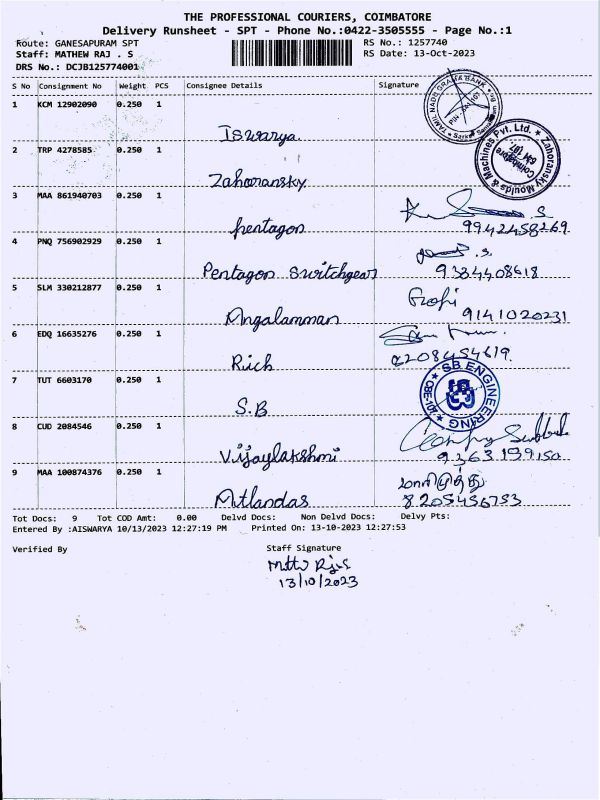 THE PROFESSIONAL COURIERS, COIMBATORE
Delivery Runsheet - SPT - Phone No.:0422-3505555 - Page No.:1
Route: GANESAPURAM SPT RS No.: 1257740
Staff: MATHEW RAJ . S RS Date: 13-Oct-2023
DRS No.: DCJB125774001
S No Consignment No Weight PCS Consignee Details Signature
1 KCM 12902090 0.250 1
Iswarya
TAMIL NADU GRAMA BANK
2 TRP 4278585 0.250 1
Zahoransky
Zahoransky Moulds & Machines Pvt. Ltd.
Coimbatore
3 MAA 861940703 0.250 1
pentagon
9942458269
4 PNQ 756902929 0.250 1
Pentagon switchgear
9384408618
5 SLM 330212877 0.250 1
Angalamman
Gopi
9141020231
6 EDQ 16635276 0.250 1
Rich
7 TUT 6603170 0.250 1
S.B
SB ENGINEERING
8 CUD 2084546 0.250 1
Vijaylakshmi
9363199150
9 MAA 100874376 0.250 1
Mitlandas
மாரிமுத்து
8205456753
Tot Docs: 9 Tot COD Amt: 0.00 Delvd Docs: Non Delvd Docs: Delvy Pts:
Entered By :AISWARYA 10/13/2023 12:27:19 PM Printed On: 13-10-2023 12:27:53
Verified By Staff Signature
13/10/2023